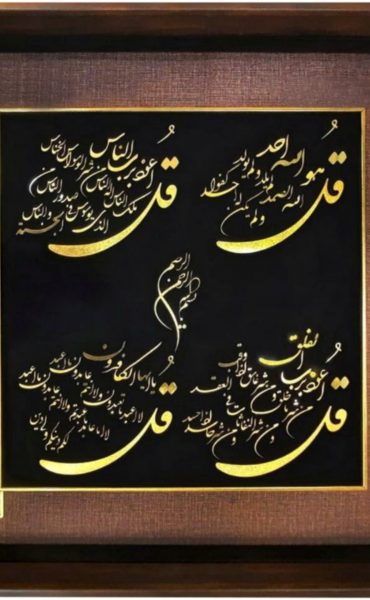 قُل هو الله احد
الله الصمد لم یلد ولم یولد
ولم یکن له کفوا
قُل اعوذ برب الناس
ملک الناس اله الناس من شر الوسواس الخناس
الذی یوسوس فی صدور الناس
من الجنة والناس
بسم الله
الرحمن
الرحیم
قُل اعوذ برب الفلق
من شر ما خلق و من شر غاسق اذا وقب
و من شر النفاثات فی العقد
و من شر حاسد اذا حسد
قُل یا ایها الکافرون
لا اعبد ما تعبدون ولا انتم عابدون ما اعبد
ولا انا عابد ما عبدتم ولا انتم عابدون ما اعبد
لکم دینکم ولی دین